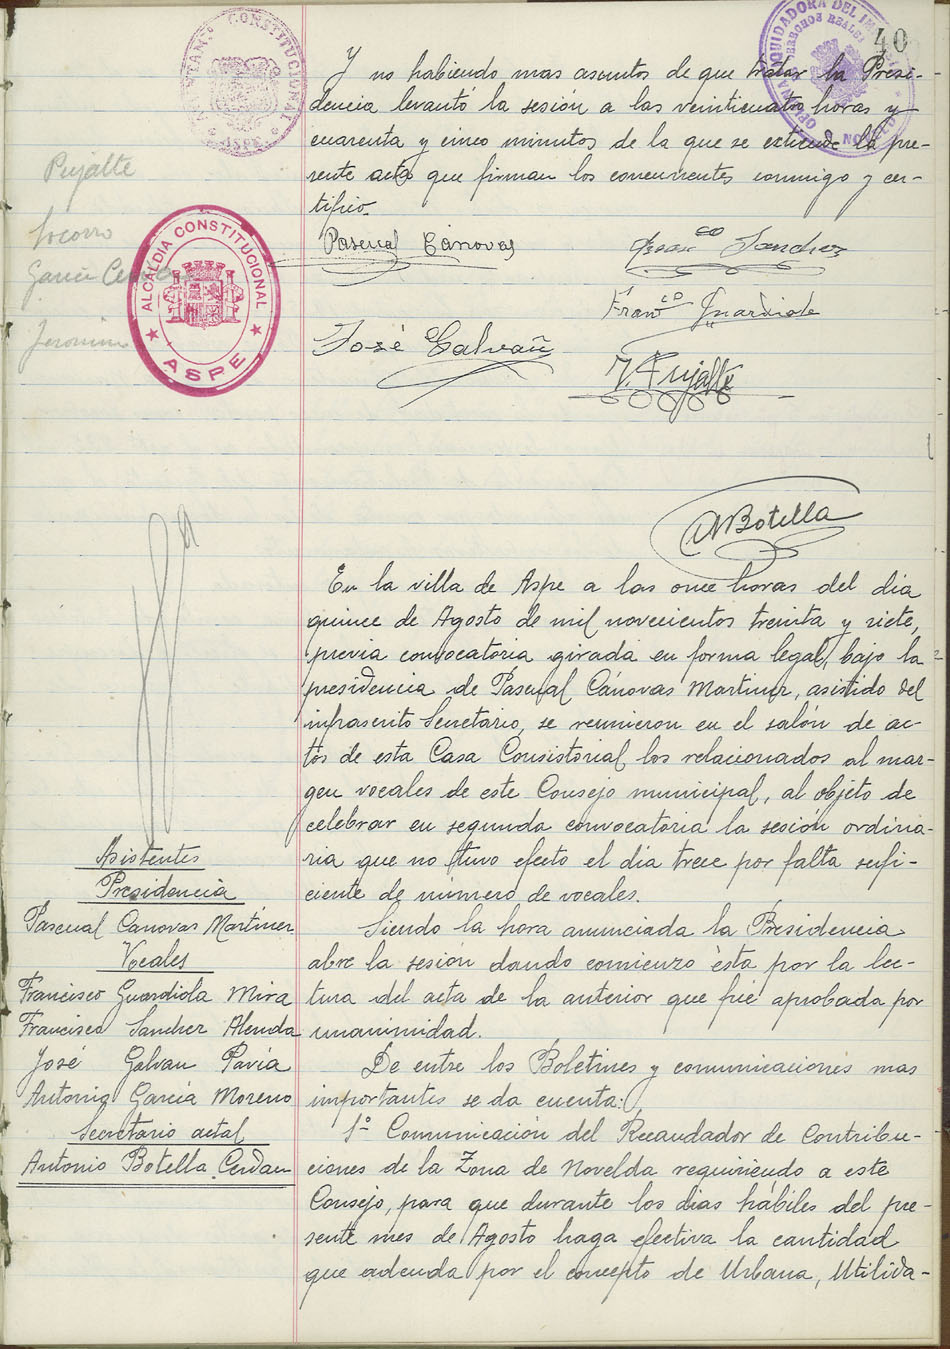 40
AYUNTAM.º CONSTITUCIONAL
ASPE
OFICINA LIQUIDADORA DEL
DERECHOS REALES
NOVELDA
Y no habiendo mas asuntos de que tratar la Presi-
dencia levantó la sesión a las veinticuatro horas y
cuarenta y cinco minutos de la que se extiende la pre-
sente acta que firman los concurrentes conmigo y cer-
tifico.
Pujalte
Socorro
Garcia
Jeronimo
ALCALDIA CONSTITUCIONAL
ASPE
Pascual Cánovas
Franco Sanchez
Franco Guardiola
José Galvañ
F. Pujalte
A Botella
En la villa de Aspe a las once horas del dia
quince de Agosto de mil novecientos treinta y siete,
previa convocatoria girada en forma legal, bajo la
presidencia de Pascual Cánovas Martinez, asistido del
infrascrito Secretario, se reunieron en el salón de ac-
tos de esta Casa Consistorial los relacionados al mar-
gen vocales de este Consejo municipal, al objeto de
celebrar en segunda convocatoria la sesión ordina-
ria que no tuvo efecto el dia trece por falta sufi-
ciente de número de vocales.
Asistentes
Presidencia
Pascual Canovas Martinez
Vocales
Francisco Guardiola Mira
Francisco Sanchez Alenda
José Galvan Pavía
Antonio Garcia Moreno
Secretario actal
Antonio Botella Cerdan
Siendo la hora anunciada la Presidencia
abre la sesión dando comienzo ésta por la lec-
tura del acta de la anterior que fué aprobada por
unanimidad.
De entre los Boletines y comunicaciones mas
importantes se da cuenta:
1º Comunicación del Recaudador de Contribu-
ciones de la Zona de Novelda requiriendo a este
Consejo, para que durante los dias hábiles del pre-
sente mes de Agosto haga efectiva la cantidad
que adeuda por el concepto de Urbana, Utilida-